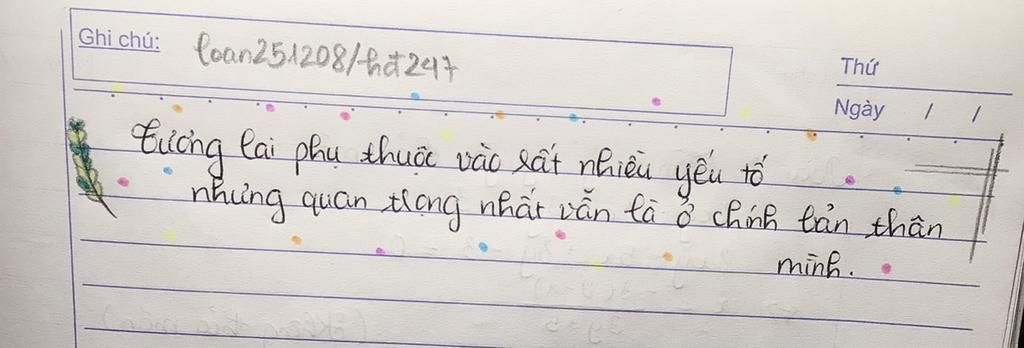 Ghi chú: loan251208/hđ247
Thứ
Ngày / /
Tương lai phụ thuộc vào rất nhiều yếu tố
nhưng quan trọng nhất vẫn là ở chính bản thân
mình.